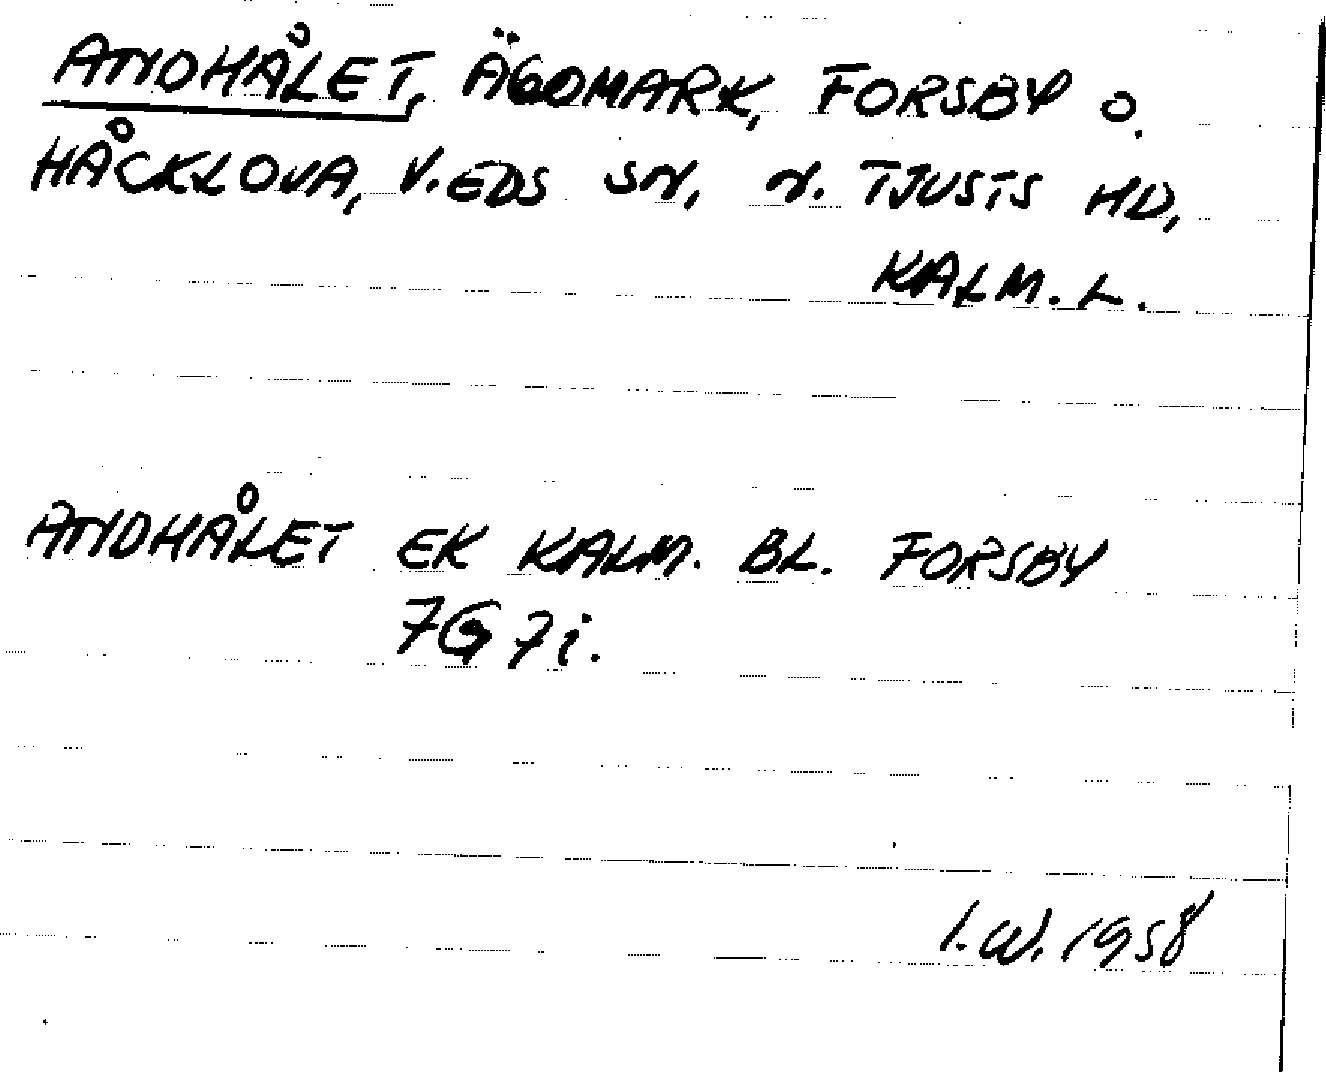 ANDHÅLET, ÄGOMARK, FORSBY O.
HÅCKLOVA, V. EDS SN, N. TJUSTS HD,
KALM. L.
ANDHÅLET EK KALM. BL. FORSBY
7G 7i.
I.W. 1958